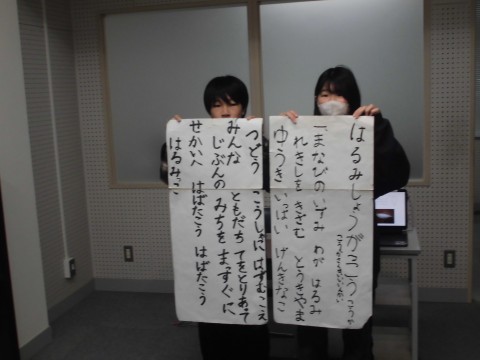 はるみしょうがっこうこうか
一まなびのいずみ わが はるみ
れきしを きざむ とうきやま
ゆうき いっぱい げんきなこ
つどう こうしゃに はずむこえ
みんな ともだち てをとりあって
じぶんの みちを まっすぐに
せかいへ はばたこう はばたこう
はるみっこ